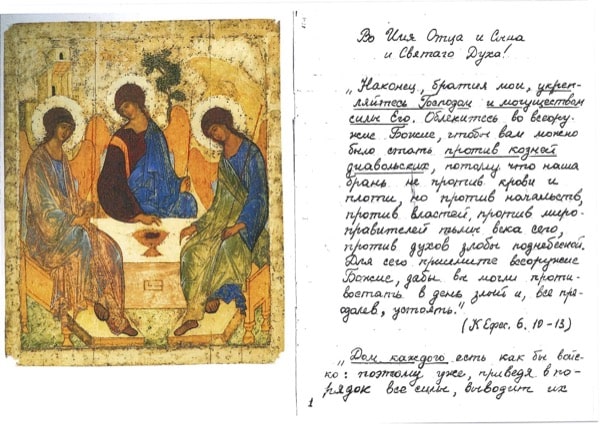 Во Имя Отца и Сына
и Святаго Духа!
„Наконец, братия мои, укреп-
ляйтесь Господом и могуществом
силы Его. Облекитесь во всеору-
жие Божие, чтобы вам можно
было стать против козней
диавольских, потому что наша
брань не против крови и
плоти, но против начальств,
против властей, против миро-
правителей тьмы века сего,
против духов злобы поднебесной.
Для сего приимите всеоружие
Божие, дабы вы могли проти-
востать в день злой и, все пре-
одолев, устоять."
(К Ефес. 6. 10-13)
„Дом каждого есть как бы войс-
ко: поэтому уже, приведя в по-
рядок все силы, выводит их
1